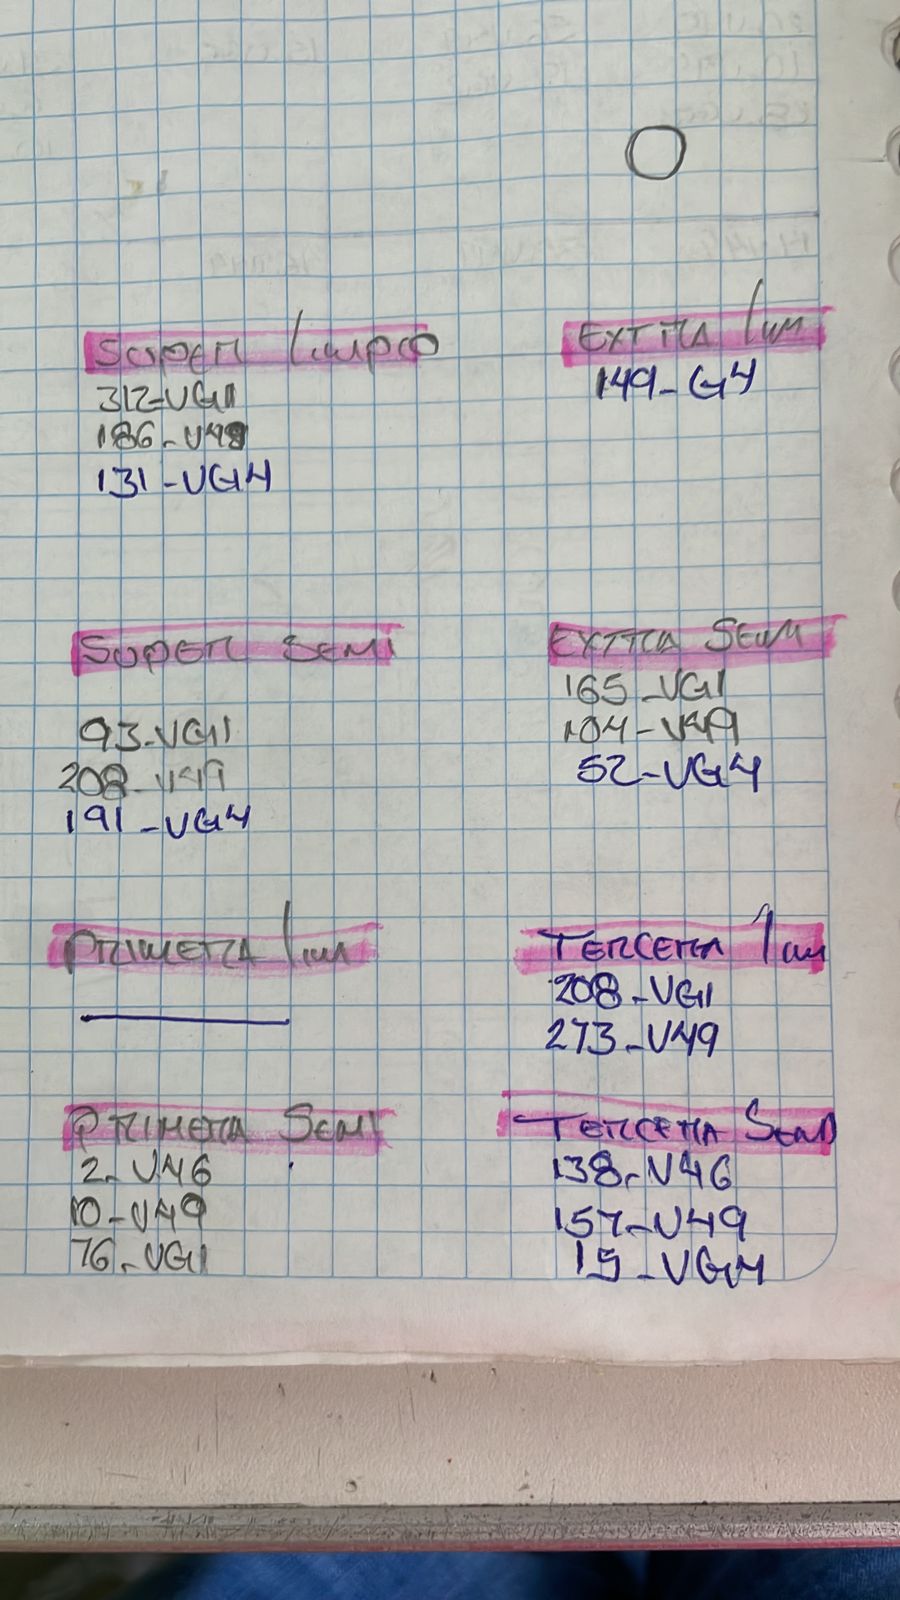 SUPER limpio
312-VG1
186-V49
131-VG4
EXTRA lim
149-G4
SUPER SEMI
93-VG1
208-V49
191-VG4
EXTRA SEMI
165-VG1
104-V49
52-VG4
PRIMERA lim
TERCERA lim
208-VG1
273-V49
PRIMERA SEMI
2-V46
10-V49
76-VG1
TERCERA SEMI
138-V46
157-V49
15-VG4